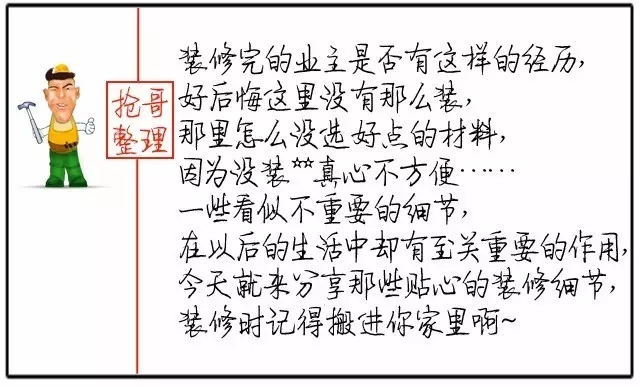 抢哥
整理
装修完的业主是否有这样的经历，
好后悔这里没有那么装，
那里怎么没选好点的材料，
因为没装**真心不方便……
一些看似不重要的细节，
在以后的生活中却有至关重要的作用，
今天就来分享那些贴心的装修细节，
装修时记得搬进你家里啊~